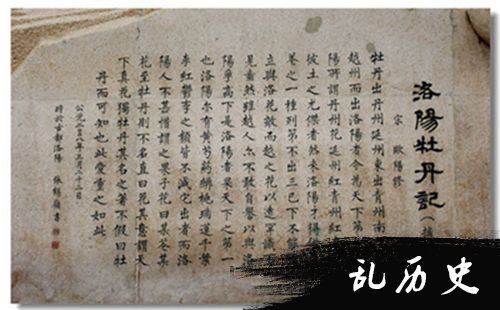 洛陽牡丹記（摘
宋 歐陽修
牡丹出丹州延州東出青州南
越州而出洛陽者今為天下第
陽所謂丹州花延州紅青州紅
彼土之尤傑者然來洛陽才得
花之一種列第不出三已下不
立與洛花敵而越之花以遠罕識不
見齒然雖越人亦不敢自譽以與洛
陽爭高下是洛陽者果天下之第一
也洛陽亦有黃芍藥緋桃瑞蓮千葉
李紅鬱李之類皆不減它出者而洛
陽人不甚惜謂之果子花曰某花某
花至牡丹則不名直曰花其意謂天
下真花獨牡丹其名之著不假曰牡
丹而可知也其愛重之如此
年三月二十三日
時於古都洛陽 張錫書
乱历史